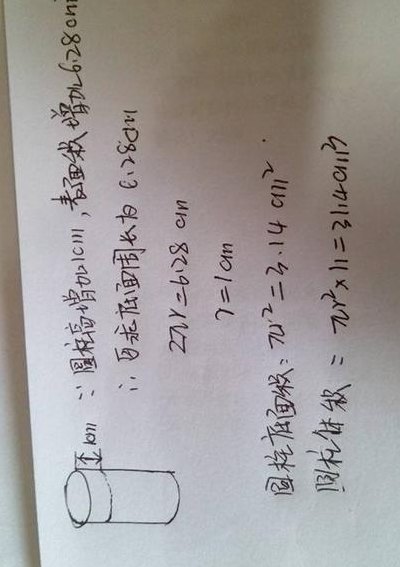 ∵圆柱高增加1cm,表面积增加6.28cm
∴百余底面周长为6.28cm
2πr=6.28cm
r=1cm
圆柱底面积:πr²=3.14cm².
圆柱体积:πr²×11=31.4cm³
1cm